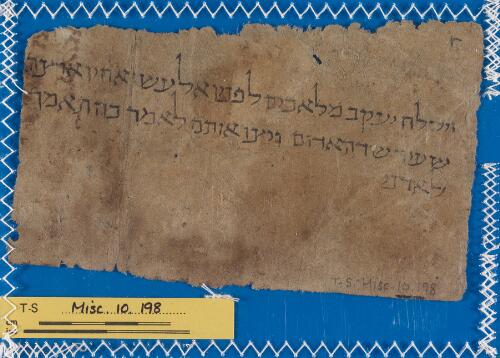 וישלח יעקב מלאכים לפניו אל עשו אחיו ארצה
שעיר שדה אדום ויצו אותם לאמר כה תאמר
לאדני
T-S. Misc. 10. 198
T-S Misc. 10. 198